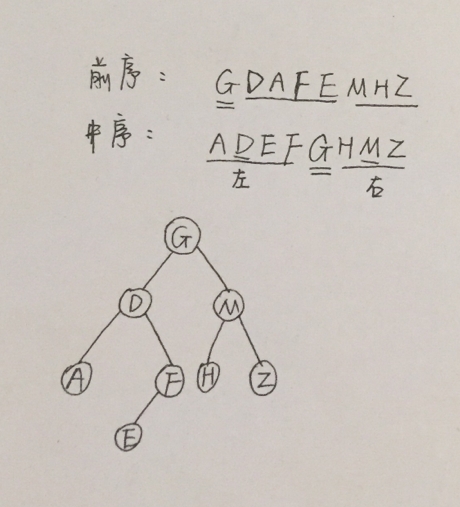 前序： GDAFEMHZ
中序： ADEFGHMZ
左 右
G
D M
A F H Z
E